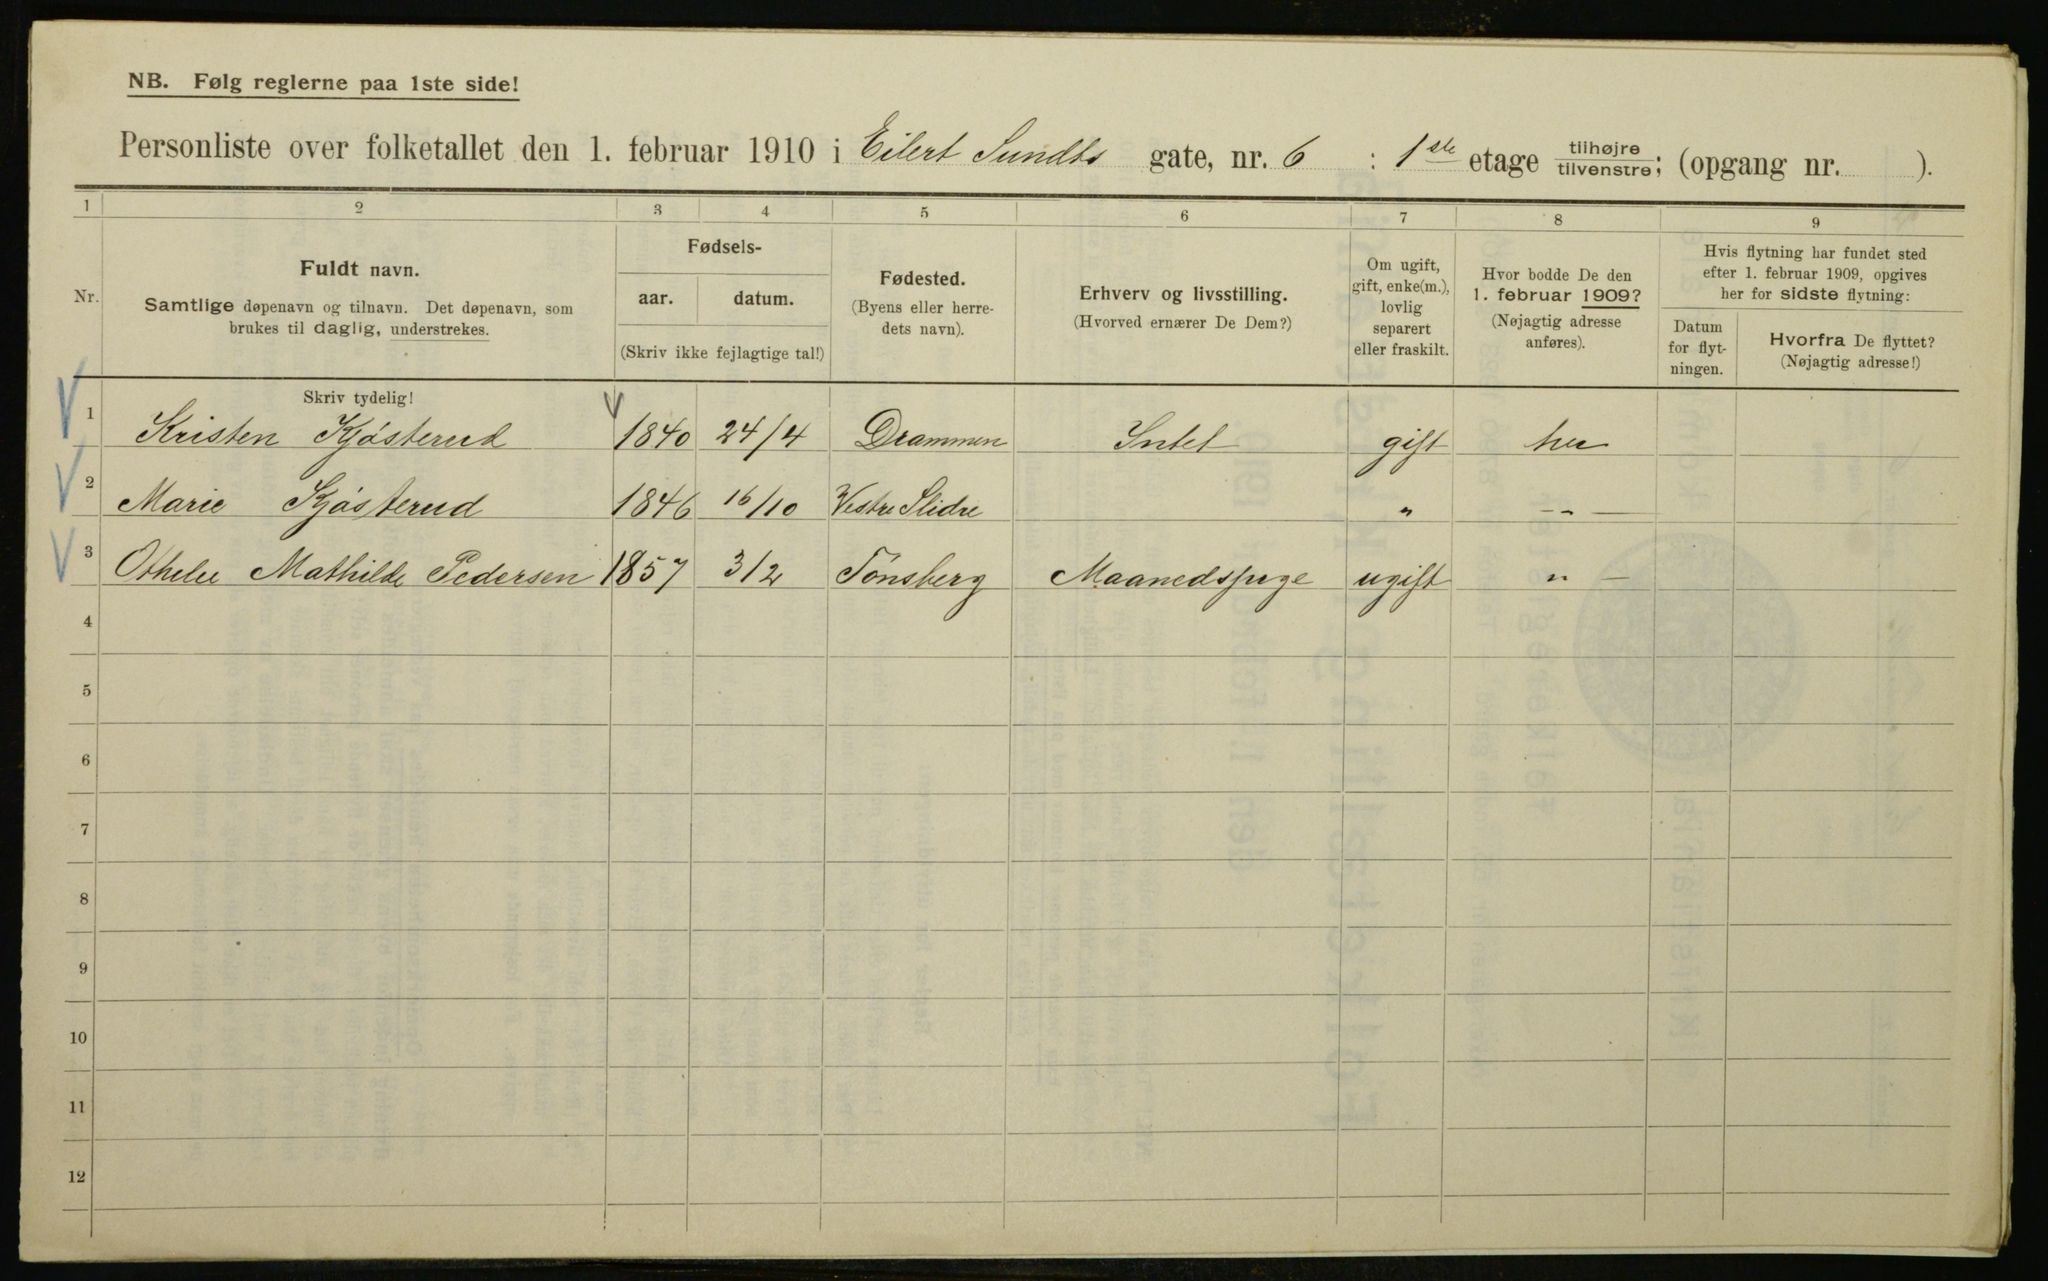 NB. Følg reglerne paa 1ste side!
Personliste over folketallet den 1. februar 1910 i Eilert Sundts gate, nr. 6 : 1ste etage tilhøjre/tilvenstre; (opgang nr. ).
1 2 3 4 5 6 7 8 9
Nr.
Fuldt navn.
Samtlige døpenavn og tilnavn. Det døpenavn, som
brukes til daglig, understrekes.
Fødsels-
aar. datum.
(Skriv ikke fejlagtige tal!)
Fødested.
(Byens eller herre-
dets navn).
Erhverv og livsstilling.
(Hvorved ernærer De Dem?)
Om ugift,
gift, enke(m.),
lovlig
separert
eller fraskilt.
Hvor bodde De den
1. februar 1909?
(Nøjagtig adresse
anføres).
Hvis flytning har fundet sted
efter 1. februar 1909, opgives
her for sidste flytning:
Datum
for flyt-
ningen.
Hvorfra De flyttet?
(Nøjagtig adresse!)
Skriv tydelig!
1 Kristen Kjøsterud 1840 24/4 Drammen Intet gift her
2 Marie Kjøsterud 1846 16/10 Vestre Slidre " — " —
3 Mathilde Pedersen 1857 3/2 Tønsberg Maanedspige ugift " —
4
5
6
7
8
9
10
11
12